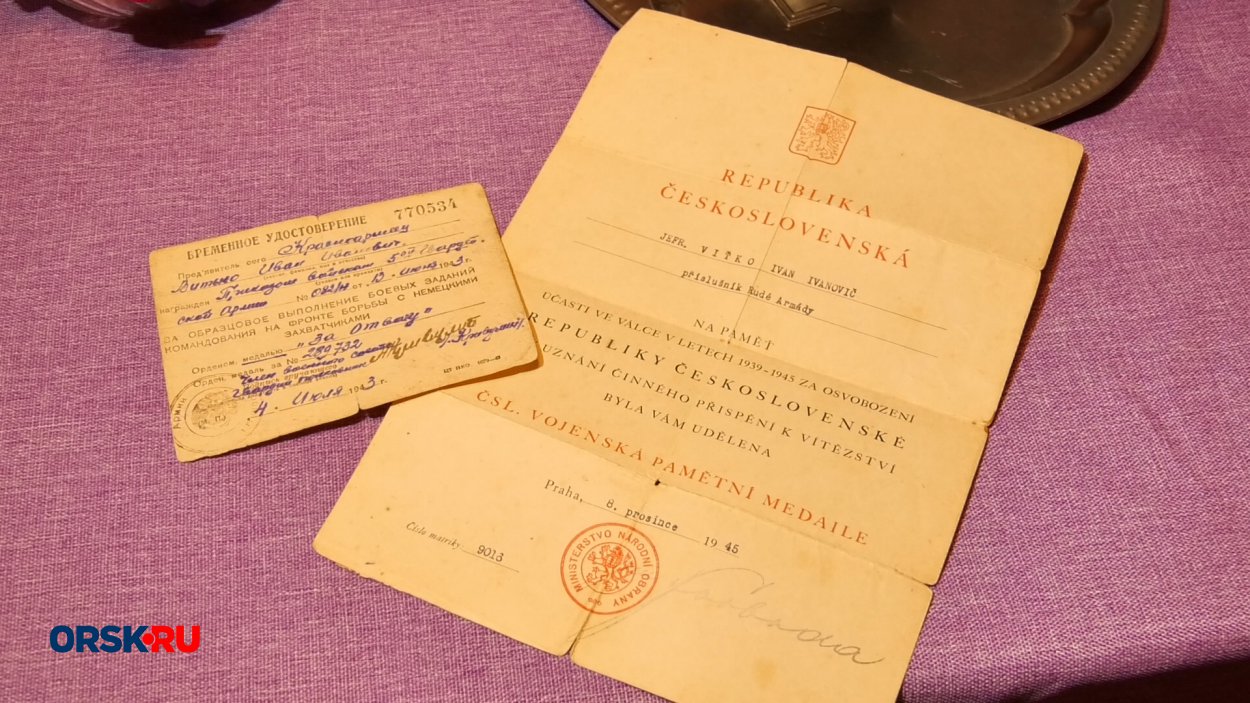 ВРЕМЕННОЕ УДОСТОВЕРЕНИЕ 770534
Пред'явитель сего Красноармеец
Витько Иван Иванович
награжден Приказом войскам 5ой Гвардей-
ской Армии № 082/н от 13 июня 1943 г.
ЗА ОБРАЗЦОВОЕ ВЫПОЛНЕНИЕ БОЕВЫХ ЗАДАНИЙ
КОМАНДОВАНИЯ НА ФРОНТЕ БОРЬБЫ С НЕМЕЦКИМИ
ЗАХВАТЧИКАМИ
Орденом, медалью "За Отвагу"
Орден, медаль за № 280732
Член военного совета
4 Июля 1943 г.
REPUBLIKA
ČESKOSLOVENSKÁ
JEFR. VIŤKO IVAN IVANOVIČ
příslušník Rudé Armády
NA PAMĚŤ
ÚČASTI VE VÁLCE V LETECH 1939-1945 ZA OSVOBOZENÍ
REPUBLIKY ČESKOSLOVENSKÉ
UZNÁNÍ ČINNÉHO PŘISPĚNÍ K VÍTĚZSTVÍ
BYLA VÁM UDĚLENA
ČSL. VOJENSKÁ PAMĚTNÍ MEDAILE
Praha, 8. prosince 1945
Číslo matriky 9013
MINISTERSTVO NÁRODNÍ OBRANY
ORSK.RU